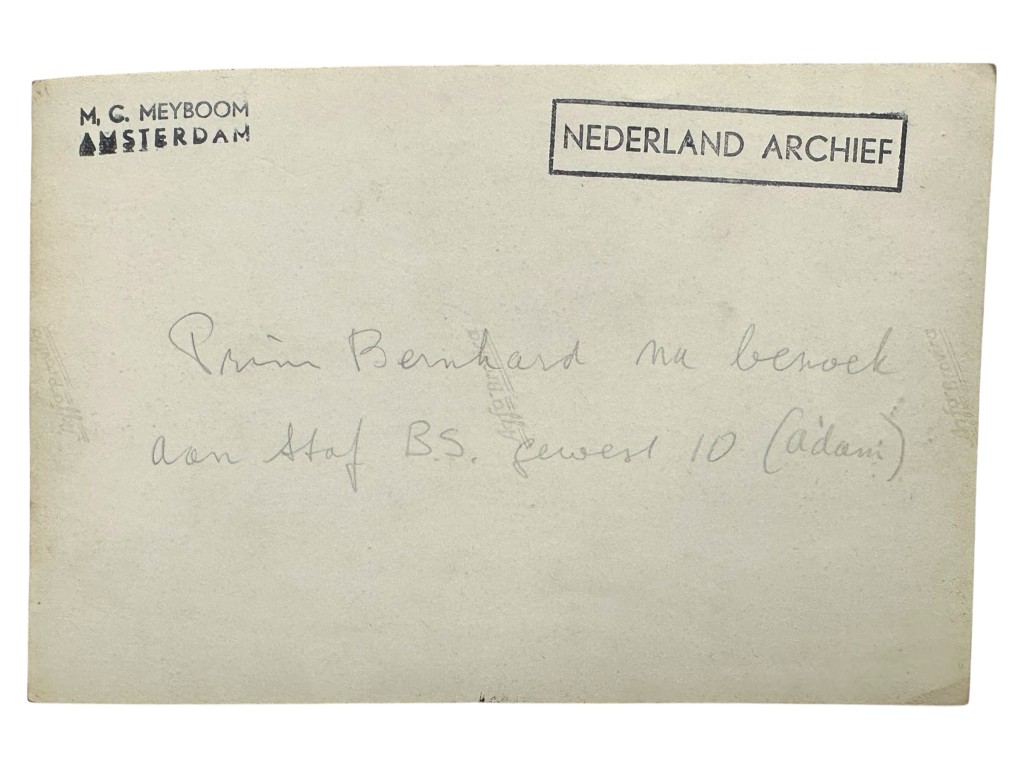 M. C. MEYBOOM
AMSTERDAM
NEDERLAND ARCHIEF
Prins Bernhard na bezoek
aan Staf B.S. gewest 10 (A'dam)